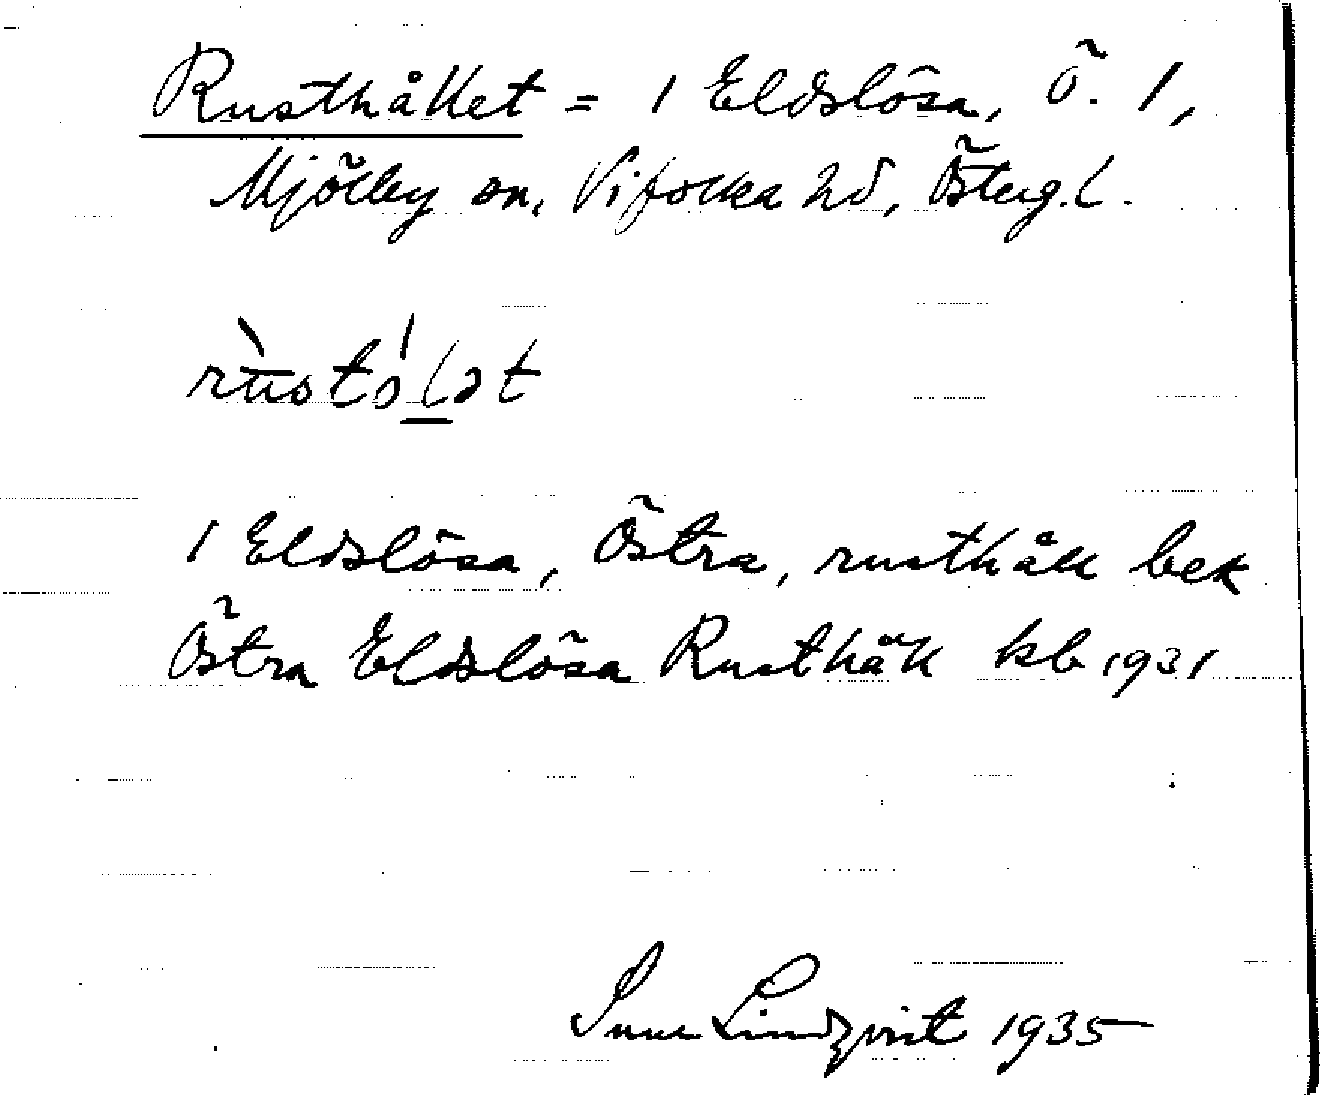 Rusthållet = 1 Eldslösa, Ö. 1,
Mjölby sn, Vifolka hd, Österg. l.
1 Eldslösa, Östra, rusthåll bek
Östra Eldslösa Rusthåll kb 1931
Lindqvist 1935